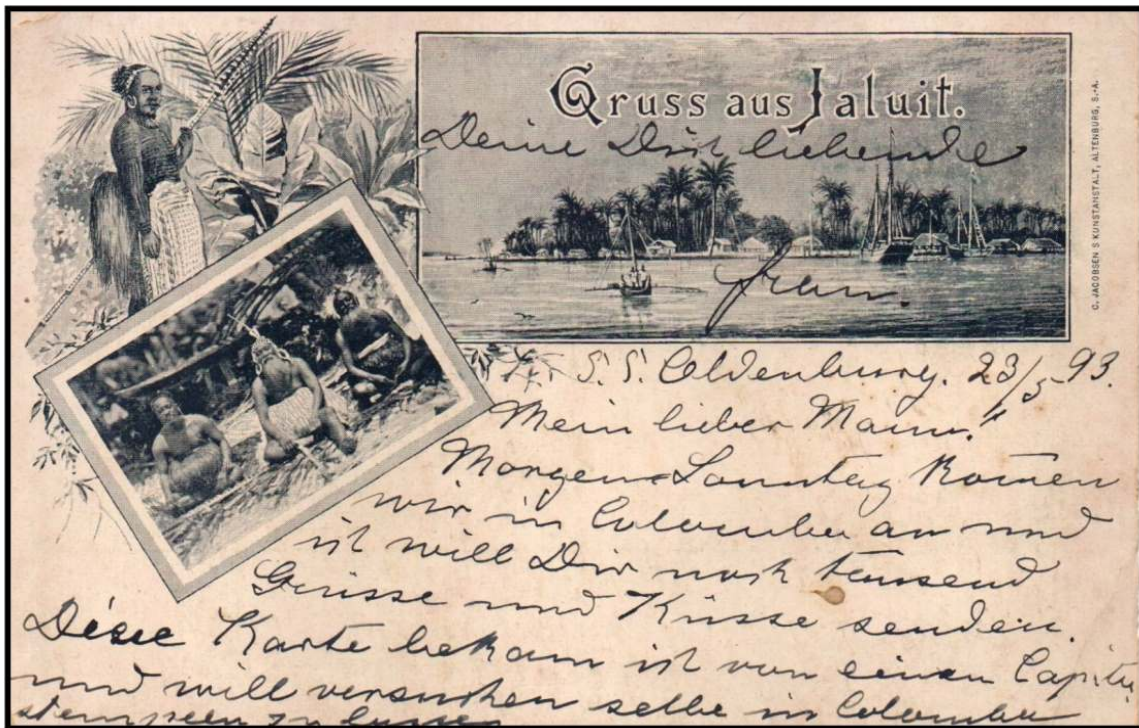 Gruss aus Jaluit.
Deine Dich liebende
frau.
C. JACOBSEN'S KUNSTANSTALT, ALTENBURG, S.-A.
S. S. Oldenburg. 23/5 93.
Mein lieber Mann!
Morgen Sonntag Kom̄en
wir in Colombo an und
ich will Dir noch tausend
Grüsse und Küsse senden.
Diese Karte bekam ich von einem
und will versuchen selbe in Colombo
stempeln zu lassen